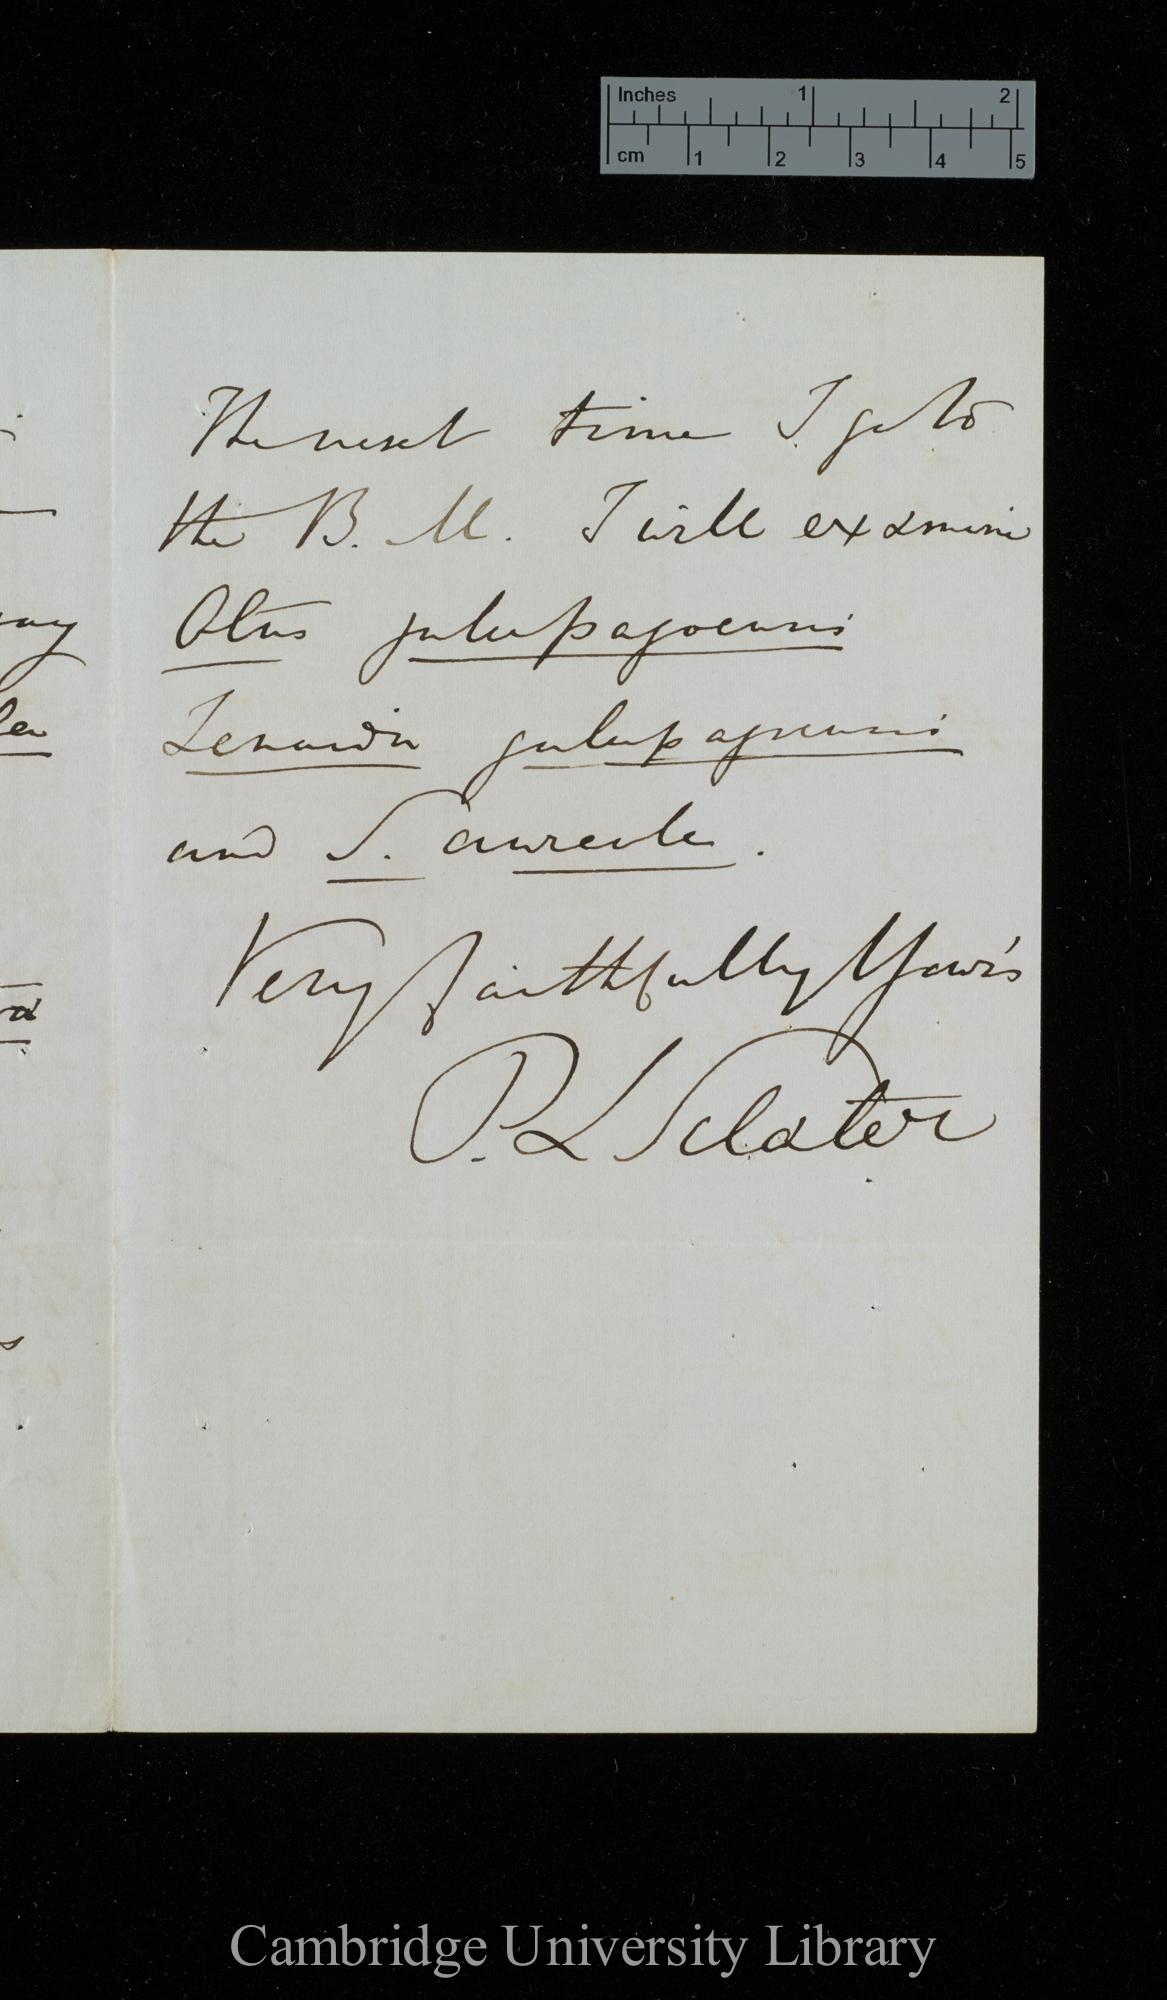 Inches 1 2
cm 1 2 3 4 5
The next time I go to
the B. M. I will examine
Otus galapagoensis
Zenaida galapagoensis
and S. aureola.
Very faithfully Yours
P. L Sclater
Cambridge University Library